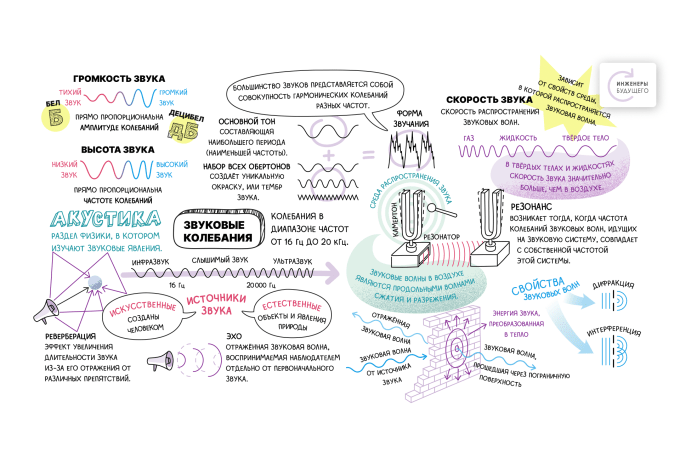 ГРОМКОСТЬ ЗВУКА
ТИХИЙ
ЗВУК
ГРОМКИЙ
ЗВУК
БЕЛ
Б
ДЕЦИБЕЛ
ДБ
ПРЯМО ПРОПОРЦИОНАЛЬНА
АМПЛИТУДЕ КОЛЕБАНИЙ
ВЫСОТА ЗВУКА
НИЗКИЙ
ЗВУК
ВЫСОКИЙ
ЗВУК
ПРЯМО ПРОПОРЦИОНАЛЬНА
ЧАСТОТЕ КОЛЕБАНИЙ
БОЛЬШИНСТВО ЗВУКОВ ПРЕДСТАВЛЯЕТСЯ СОБОЙ
СОВОКУПНОСТЬ ГАРМОНИЧЕСКИХ КОЛЕБАНИЙ
РАЗНЫХ ЧАСТОТ.
ОСНОВНОЙ ТОН
СОСТАВЛЯЮЩАЯ
НАИБОЛЬШЕГО ПЕРИОДА
(НАИМЕНЬШЕЙ ЧАСТОТЫ).
+
=
НАБОР ВСЕХ ОБЕРТОНОВ
СОЗДАЁТ УНИКАЛЬНУЮ
ОКРАСКУ, ИЛИ ТЕМБР
ЗВУКА.
ФОРМА
ЗВУЧАНИЯ
СКОРОСТЬ ЗВУКА
СКОРОСТЬ РАСПРОСТРАНЕНИЯ
ЗВУКОВЫХ ВОЛН.
ЗАВИСИТ
ОТ СВОЙСТВ СРЕДЫ,
В КОТОРОЙ РАСПРОСТРАНЯЕТСЯ
ЗВУКОВАЯ ВОЛНА
ИНЖЕНЕРЫ
БУДУЩЕГО
ГАЗ
ЖИДКОСТЬ
ТВЁРДОЕ ТЕЛО
В ТВЁРДЫХ ТЕЛАХ И ЖИДКОСТЯХ
СКОРОСТЬ ЗВУКА ЗНАЧИТЕЛЬНО
БОЛЬШЕ, ЧЕМ В ВОЗДУХЕ.
АКУСТИКА
РАЗДЕЛ ФИЗИКИ, В КОТОРОМ
ИЗУЧАЮТ ЗВУКОВЫЕ ЯВЛЕНИЯ.
ЗВУКОВЫЕ
КОЛЕБАНИЯ
КОЛЕБАНИЯ В
ДИАПАЗОНЕ ЧАСТОТ
ОТ 16 Гц ДО 20 КГц.
СРЕДА РАСПРОСТРАНЕНИЯ ЗВУКА
КАМЕРТОН
РЕЗОНАТОР
РЕЗОНАНС
ВОЗНИКАЕТ ТОГДА, КОГДА ЧАСТОТА
КОЛЕБАНИЙ ЗВУКОВЫХ ВОЛН, ИДУЩИХ
НА ЗВУКОВУЮ СИСТЕМУ, СОВПАДАЕТ
С СОБСТВЕННОЙ ЧАСТОТОЙ
ЭТОЙ СИСТЕМЫ.
ИНФРАЗВУК
СЛЫШИМЫЙ ЗВУК
УЛЬТРАЗВУК
16 Гц
20000 Гц
ЗВУКОВЫЕ ВОЛНЫ В ВОЗДУХЕ
ЯВЛЯЮТСЯ ПРОДОЛЬНЫМИ ВОЛНАМИ
СЖАТИЯ И РАЗРЕЖЕНИЯ.
ИСКУССТВЕННЫЕ
СОЗДАНЫ
ЧЕЛОВЕКОМ
ИСТОЧНИКИ
ЗВУКА
ЕСТЕСТВЕННЫЕ
ОБЪЕКТЫ И ЯВЛЕНИЯ
ПРИРОДЫ
СВОЙСТВА
ЗВУКОВЫХ ВОЛН
ДИФРАКЦИЯ
ИНТЕРФЕРЕНЦИЯ
РЕВЕРБЕРАЦИЯ
ЭФФЕКТ УВЕЛИЧЕНИЯ
ДЛИТЕЛЬНОСТИ ЗВУКА
ИЗ-ЗА ЕГО ОТРАЖЕНИЯ ОТ
РАЗЛИЧНЫХ ПРЕПЯТСТВИЙ.
ЭХО
ОТРАЖЁННАЯ ЗВУКОВАЯ ВОЛНА,
ВОСПРИНИМАЕМАЯ НАБЛЮДАТЕЛЕМ
ОТДЕЛЬНО ОТ ПЕРВОНАЧАЛЬНОГО
ЗВУКА.
ОТРАЖЁННАЯ
ЗВУКОВАЯ ВОЛНА
ЗВУКОВАЯ ВОЛНА
ОТ ИСТОЧНИКА
ЗВУКА
ЭНЕРГИЯ ЗВУКА,
ПРЕОБРАЗОВАННАЯ
В ТЕПЛО
ЗВУКОВАЯ ВОЛНА,
ПРОШЕДШАЯ ЧЕРЕЗ ПОГРАНИЧНУЮ
ПОВЕРХНОСТЬ